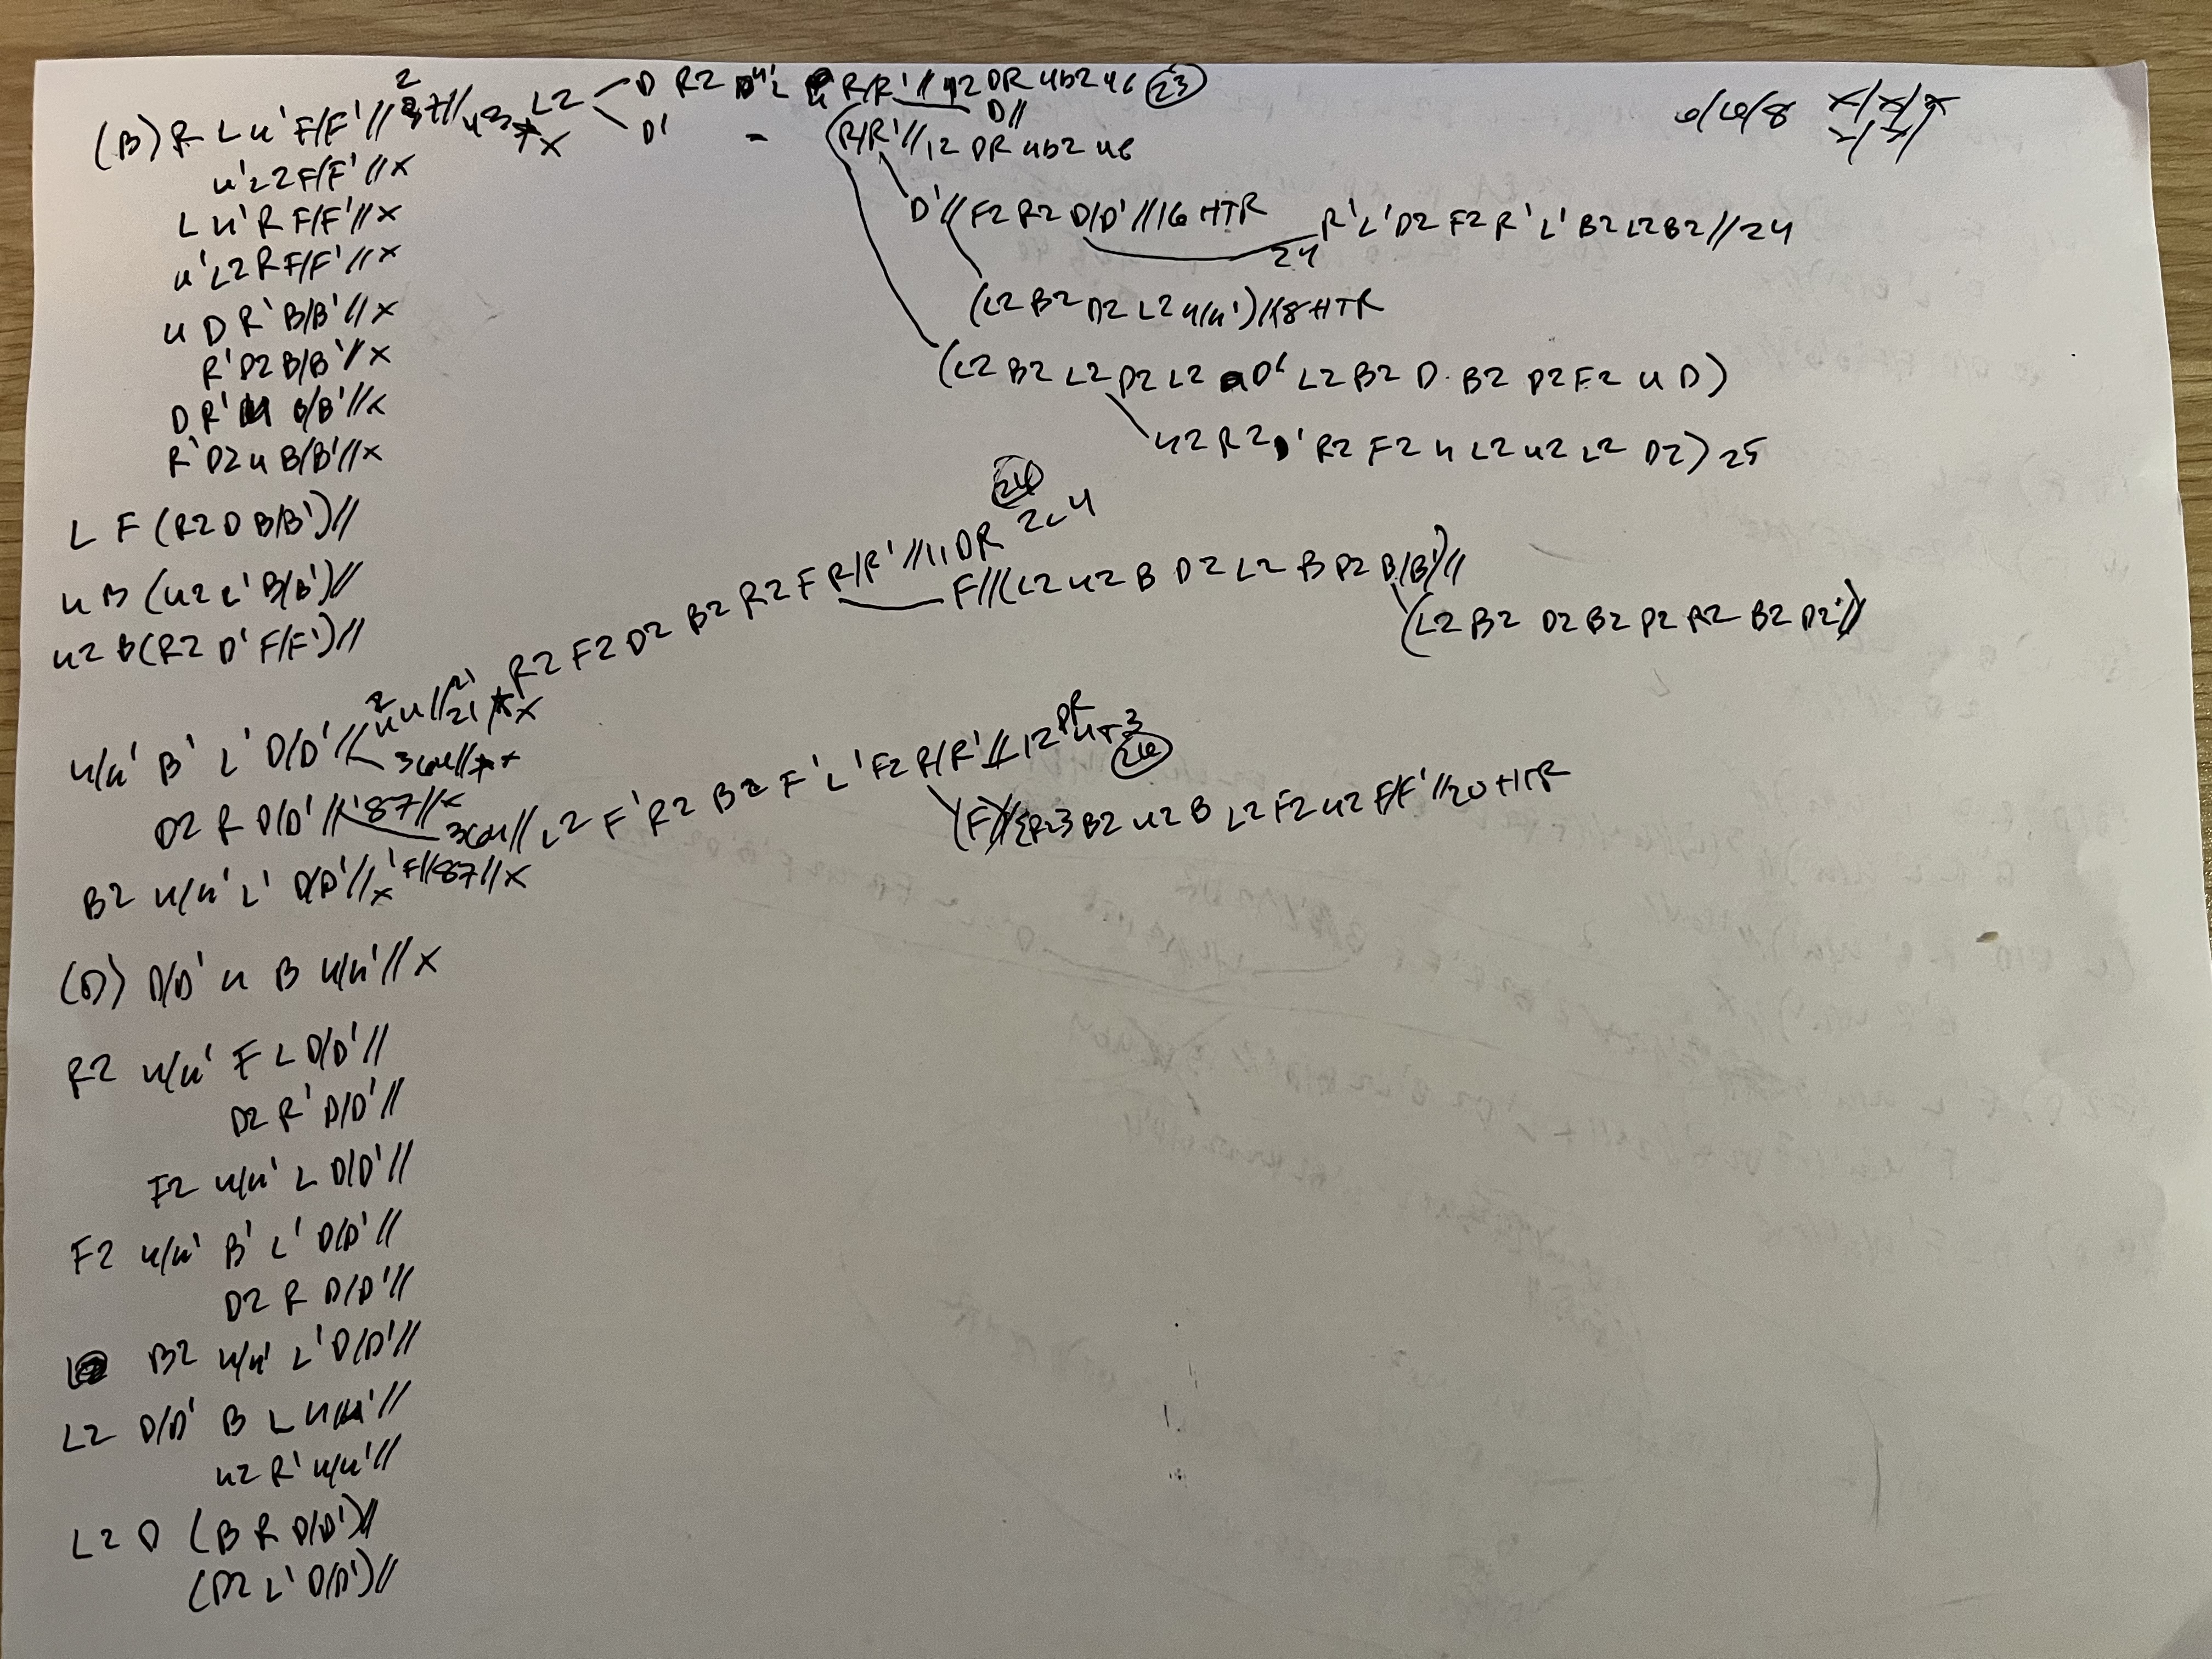 (B) R L u' F/F' // 2 87// L2 D R2 L R/R' // 12 DR 4b2 46 23
D' - (R/R' // 12 DR 4b2 46 D//
6/6/8 x/x/x
u' L2 F/F' // x
L u' R F/F' // x
D' // F2 R2 D/D' // 16 HTR R' L' D2 F2 R' L' B2 L2 B2 // 24
24
u' L2 R F/F' // x
(L2 B2 D2 L2 u/u') // 18 HTR
u D R' B/B' // x
R' D2 B/B' // x
(L2 B2 L2 D2 L2 D' L2 B2 D B2 D2 F2 u D)
D R' u B/B' // x
R' D2 u B/B' // x
u2 R2 D' R2 F2 u L2 u2 L2 D2) 25
L F (R2 D B/B') //
u B (u2 L' B/B') //
u2 B (R2 D' F/F') //
u/u' B' L' D/D' // 2 u // 21 x R2 F2 D2 B2 R2 F R/R' // 11 DR 2c4 24
F // (L2 u2 B D2 L2 B D2 B/B') //
(L2 B2 D2 B2 D2 R2 B2 D2) //
3c4 // x
D2 R D/D' // 87 // x
3c4 // L2 F' R2 B2 F' L' F2 R/R' // 12 DR 4T3 26
(F) // {R2} B2 u2 B L2 F2 u2 F/F' // 20 HTR
B2 u/u' L' D/D' // x F // 87 // x
(D) D/D' u B u/u' // x
R2 u/u' F L D/D' //
D2 R' D/D' //
F2 u/u' L D/D' //
F2 u/u' B' L' D/D' //
D2 R D/D' //
B2 u/u' L' D/D' //
L2 D/D' B L u/u' //
u2 R' u/u' //
L2 D (B R D/D') //
(D2 L' D/D') //